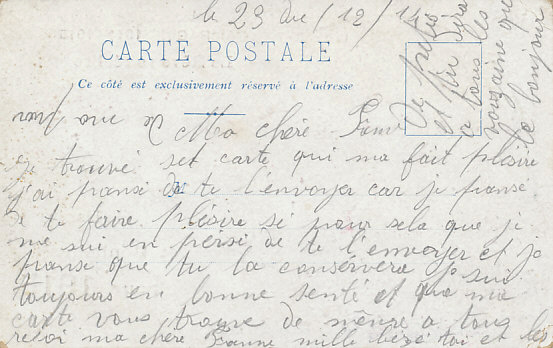 le 23 / 12 / 14
CARTE POSTALE
Ce côté est exclusivement réservé à l'adresse
Ma chère
je trouvé set carte qui ma fait plésire
j'ai pransé de te l'envoyer car je pransé
de te faire plésire si pour sela que je
me sui en de te l'envoyer et je
pranse que tu la conservera je sui
toujours en bonne senté et que ma
carte vous trouve de même a tous
resoi ma chère Jeanne mille bézé toi et les
de
et
a tous les
que
le bonjour